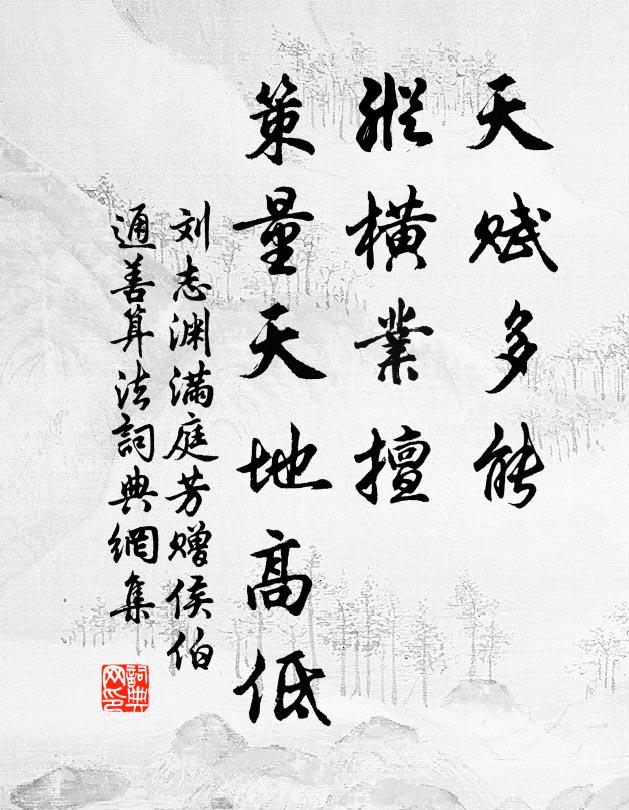 天赋多能
縱橫業擅
策量天地高低
刘志渊满庭芳赠侯伯
通善算法詞典網集
詞典网印